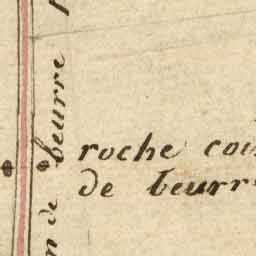 roche cou
de beurr
n de beurre